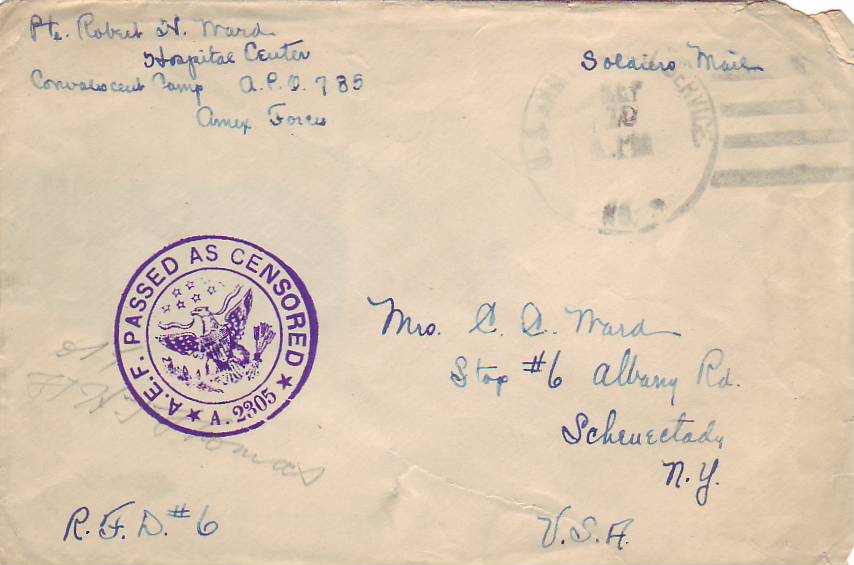 Pte. Robert H. Ward
Hospital Center
Convalescent Camp A.P.O. 785
Amex Forces
Soldiers Mail
SERVICE
A.E.F. PASSED AS CENSORED
A. 2305
Mrs. C. C. Ward
Stop #6 Albany Rd.
Schenectady
N.Y.
R.F.D. #6
U.S.A.